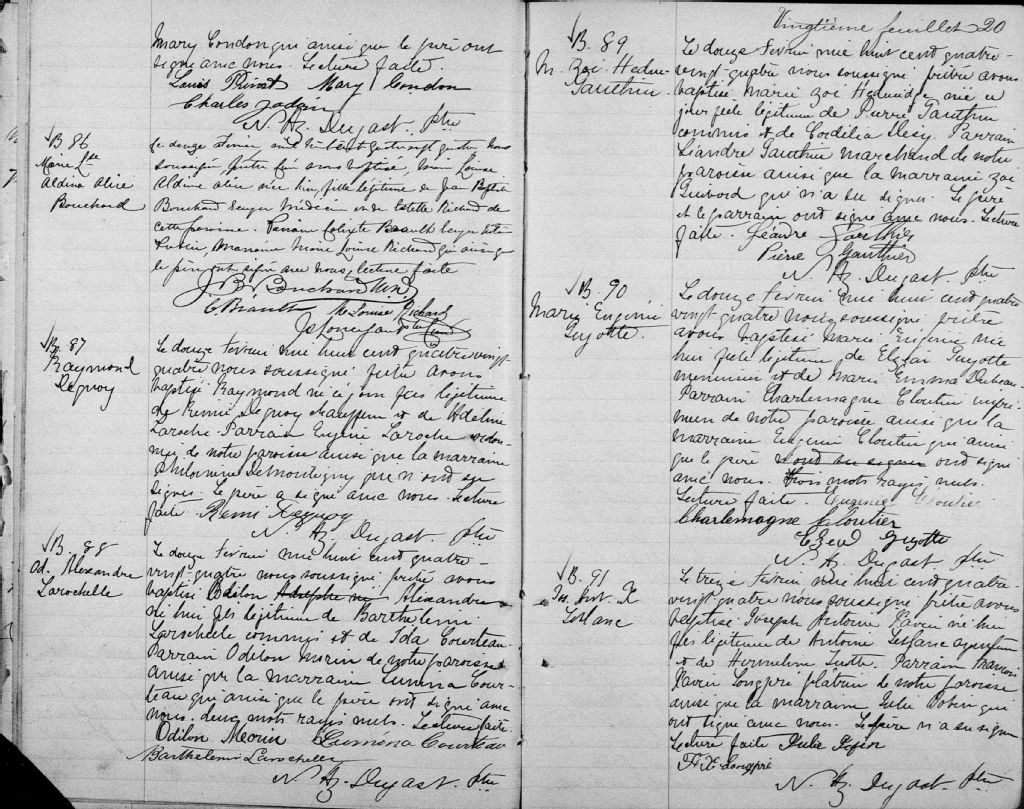 Mary Condon qui ainsi que le père ont
signé avec nous. Lecture faite.
Louis Mary Condon
Charles
N. Az. Dugast Ptre
B 86
Marie Lse
Aldina Alice
Bouchard
Le douze février mil huit cent quatre vingt quatre nous
soussigné, prêtre curé avons baptisé, Marie Louise
Aldina Alice née hier, fille légitime de Jean Baptiste
Bouchard Ecuyer Médecin et de Estelle Richard de
cette paroisse. Parrain Brault Ecuyer
Marraine Marie Louise Richard qui ainsi que
le père ont signé avec nous, lecture faite
J B Bouchard M.D.
M Louise Richard
B. 87
Raymond
Deguoy
Le douze février mil huit cent quatre vingt
quatre nous soussigné prêtre avons
baptisé Raymond né ce jour fils légitime
de Rémie Deguoy et de Adeline
Laroche. Parrain Eugène Laroche cordon-
nier de notre paroisse ainsi que la marraine
Philomène Demontigny qui n'ont su
signer. Le père a signé avec nous. Lecture
faite. Remi Deguoy
N. Az. Dugast Ptre
B. 88
Od. Alexandre
Larochelle
Le douze février mil huit cent quatre-
vingt-quatre nous soussigné prêtre avons
baptisé Odilon Alexandre
né hier fils légitime de Barthelemi
Larochelle commis et de Ida Courteau.
Parrain Odilon Morin de notre paroisse
ainsi que la marraine Luména Cour-
teau qui ainsi que le père ont signé avec
nous. deux mots rayés nuls. Lecture faite
Odilon Morin Luména Courteau
Barthelemi Larochelle
N. Az. Dugast Ptre
Vingtième feuillet 20
B. 89
M. Zoé Hedwi-
Gauthier
Le douze février mil huit cent quatre-
vingt-quatre nous soussigné prêtre avons
baptisé Marie Zoé Hedwidge née ce
jour fille légitime de Pierre Gauthier
commis et de Cordélia Désy. Parrain
Liandre Gauthier marchand de notre
paroisse ainsi que la marraine Zoé
Guibord qui n'a su signer. Le père
et le parrain ont signé avec nous. Lecture
faite. Léandre Gauthier
Pierre Gauthier
N. Az. Dugast Ptre
B. 90
Marie Eugénie
Guyotte
Le douze février mil huit cent quatre
vingt quatre nous soussigné prêtre
avons baptisé Marie Eugénie née
hier fille légitime de Elzéar Guyotte
menuisier et de Marie Emma Dubeau.
Parrain Charlemagne Cloutier impri-
meur de notre paroisse ainsi que la
marraine Eugénie Cloutier qui ainsi
que le père n'ont su signer ont signé
avec nous. Trois mots rayés nuls.
Lecture faite. Eugénie Cloutier
Charlemagne Cloutier
Guyotte
N. Az. Dugast Ptre
B. 91
Jos. Ant. X
Leblanc
Le treize février mil huit cent quatre-
vingt quatre nous soussigné prêtre avons
baptisé Joseph Antoine Xavier né hier
fils légitime de Antoine Leblanc
et de Hermeline. Parrain François
Xavier Longpré de notre paroisse
ainsi que la marraine Julie qui
ont signé avec nous. Le père n'a su signer
Lecture faite Julie
F X Longpré
N. Az. Dugast Ptre